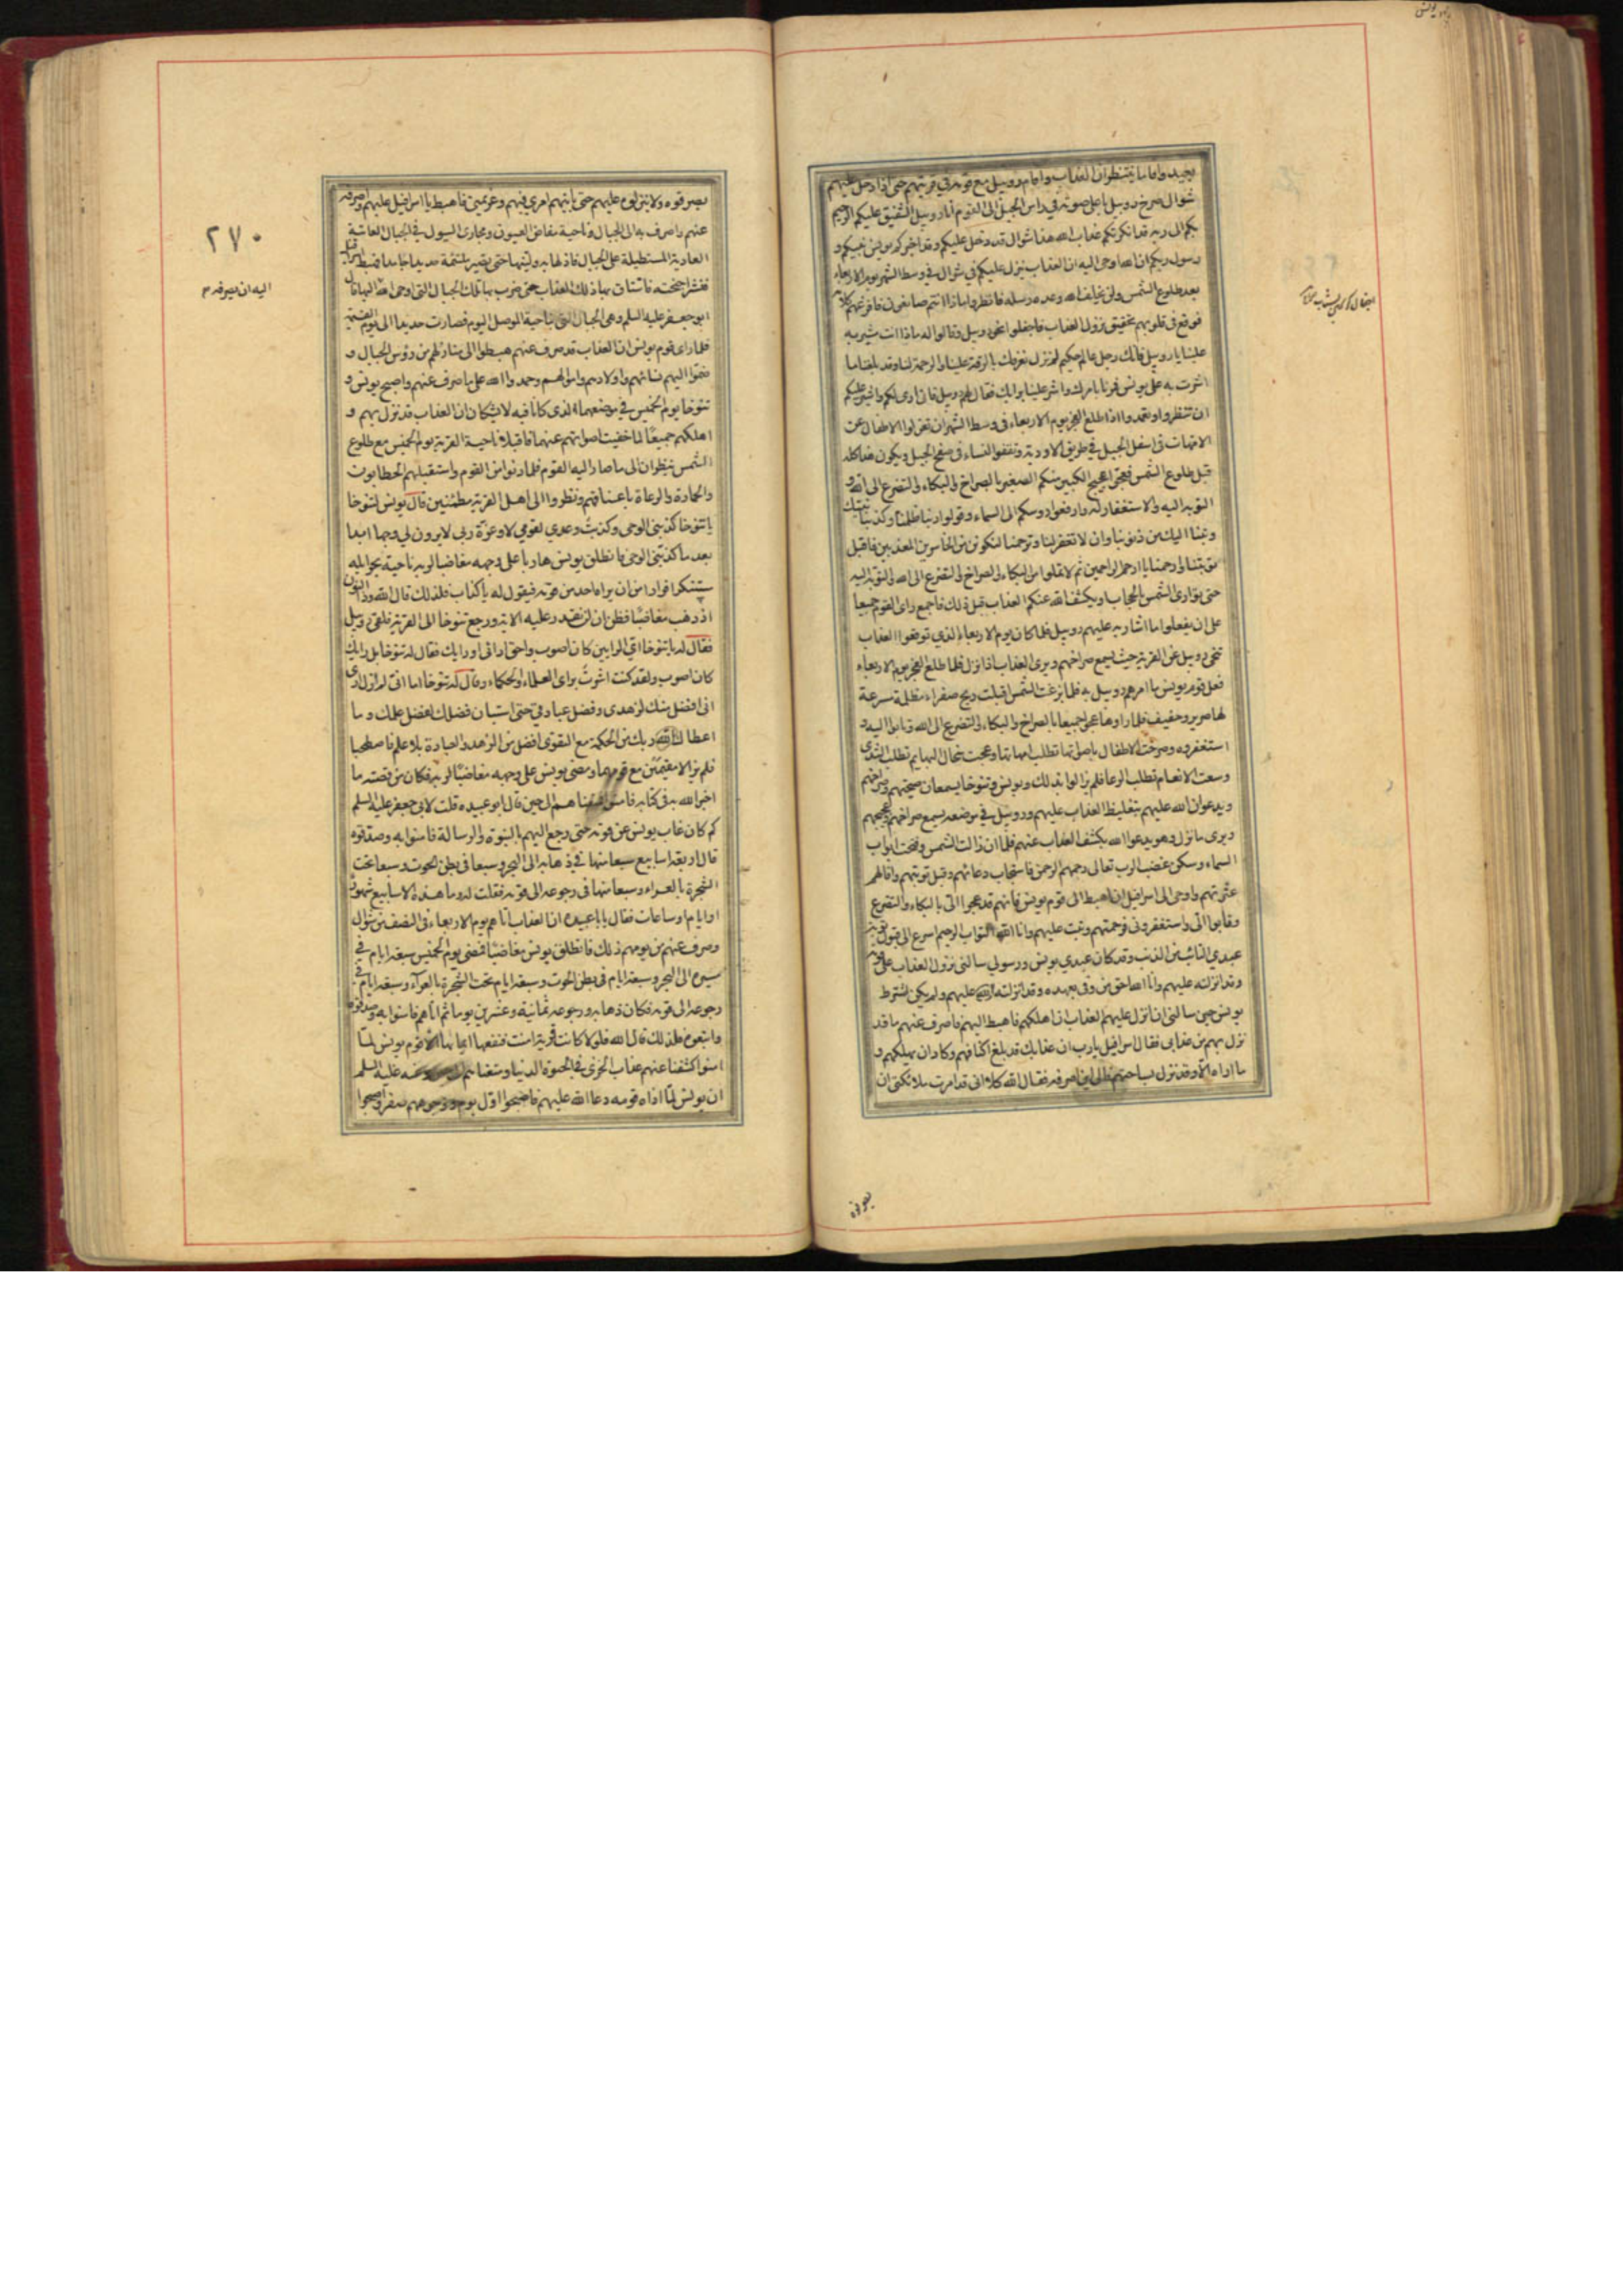 بعيد واقاما ينتظران العذاب واقام روبيل مع قومه في قريتهم حتى اذا دخل عليهم
شوال صرخ روبيل باعلى صوته في راس الجبل الى القوم انا روبيل الشفيق عليكم الرحيم
بكم الى ربه قد انكرتكم عذاب الله هذا شوال قد دخل عليكم وقد اخبركم يونس نبيكم و
رسول ربكم ان الله اوحى اليه ان العذاب ينزل عليكم في شوال في وسط الشهر يوم الاربعاء
بعد طلوع الشمس ولن يخلف الله وعده رسله فانظروا ماذا انتم صانعون فافزعهم كلامه
فوقع في قلوبهم تحقيق نزول العذاب فاجفلوا نحو روبيل وقالوا له ماذا انت مشير به
علينا يا روبيل فانك رجل عالم حكيم لم نزل نعرفك بالرقة علينا والرحمة لنا وقد بلغنا ما
اشرت به على يونس فمرنا بامرك واشر علينا برايك فقال لهم روبيل فاني ارى لكم واشير عليكم
ان تنظروا وتعمدوا اذا طلع الفجر يوم الاربعاء في وسط الشهر ان تعزلوا الاطفال عن
الامهات في اسفل الجبل في طريق الاودية وتقفوا النساء في سفح الجبل ويكون هذا كله
قبل طلوع الشمس فعجوا عجيج الكبير منكم الصغير بالصراخ والبكاء والتضرع الى الله و
التوبة اليه والاستغفار له وارفعوا روسكم الى السماء وقولوا ربنا ظلمنا وكذبنا نبيك
وتبنا اليك من ذنوبنا وان لا تغفر لنا وترحمنا لنكونن من الخاسرين المعذبين فاقبل
توبتنا وارحمنا يا ارحم الراحمين ثم لا تملوا من البكاء والصراخ والتضرع الى الله والتوبة اليه
حتى توارى الشمس بالحجاب او يكشف الله عنكم العذاب قبل ذلك فاجمع راى القوم جميعا
على ان يفعلوا ما اشار به عليهم روبيل فلما كان يوم الاربعاء الذي توقعوا العذاب
تنحى روبيل عن القرية حيث يسمع صراخهم ويرى العذاب اذا نزل فلما طلع الفجر يوم الاربعاء
فعل قوم يونس ما امرهم روبيل به فلما بزغت الشمس اقبلت ريح صفراء مظلمة مسرعة
لها صرير وحفيف فلما راوها عجوا جميعا بالصراخ والبكاء والتضرع الى الله وتابوا اليه و
استغفروه وصرخت الاطفال باصواتها تطلب امهاتها وعجت سخال البهايم تطلب الثدي
وسعت الانعام تطلب الرعا فلم يزالوا بذلك ويونس وتنوخا يسمعان صيحتهم وصراخهم
ويدعوان الله عليهم بتغليظ العذاب عليهم وروبيل في موضعه يسمع صراخهم وعجيجهم
ويرى ما نزل وهو يدعوا الله بكشف العذاب عنهم فلما ان زالت الشمس وفتحت ابواب
السماء وسكن غضب الرب تعالى رحمهم الرحمن فاستجاب دعائهم وقبل توبتهم واقالهم
عثرتهم واوحى الى اسرافيل ان اهبط الى قوم يونس فانهم قد عجوا الي بالبكاء والتضرع
وتابوا الي واستغفروني فرحمتهم وتبت عليهم وانا الله التواب الرحيم اسرع الى قبول توبة
عبدي التائب من الذنب وقد كان عبدي يونس ورسولي سالني نزول العذاب على قومه
وقد انزلته عليهم وانا الله احق من وفى بعهده وقد انزلته عليهم ولم يكن اشترط
يونس حين سالني ان انزل عليهم العذاب ان اهلكهم فاهبط اليهم فاصرف عنهم ما قد
نزل بهم من عذابي فقال اسرافيل يا رب ان عذابك قد بلغ اكتافهم وكاد ان يهلكهم و
ما اراه الا وقد نزل بساحتهم فالى اين اصرفه فقال الله كلا اني قد امرت ملائكتي ان
يصرفوه
يصرفوه ولا ينزلوه عليهم حتى ياتيهم امري فيهم وعزيمتي فاهبط يا اسرافيل عليهم واصرفه
عنهم واصرف به الى الجبال وناحية مفاض العيون ومجارى السيول في الجبال العاتية
العادية المستطيلة على الجبال فاذلها به ولينها حتى يصير ملتئمة حديدا جامدا فهبط اسرافيل
فنشر اجنحته فاستاق بها ذلك العذاب حتى ضرب بها تلك الجبال التي اوحى الله اليه ان يصرفه قال
ابو جعفر عليه السلم وهي الجبال التي بناحية الموصل اليوم فصارت حديدا الى يوم القيمة
فلما راى قوم يونس ان العذاب قد صرف عنهم هبطوا الى منازلهم من رؤس الجبال و
ضموا اليهم نسائهم واولادهم واموالهم وحمدوا الله على ما صرف عنهم واصبح يونس و
تنوخا يوم الخميس في موضعهما الذي كانا فيه لا يشكان ان العذاب قد نزل بهم و
اهلكهم جميعا لما خفيت اصواتهم عنهما فاقبلا ناحية القرية يوم الخميس مع طلوع
الشمس ينظران الى ما صار اليه القوم فلما دنوا من القوم واستقبلهم الحطابون
والحمارة والرعاة باعناقهم ونظروا الى اهل القرية مطمئنين قال يونس لتنوخا
يا تنوخا كذبني الوحي وكذبت وعدي لقومي لا وعزة ربي لا يرون لي وجها ابدا
بعد ما كذبني الوحي فانطلق يونس هاربا على وجهه مغاضبا لربه ناحية بحر ايله
متنكرا فرارا من ان يراه احد من قومه فيقول له يا كذاب فلذلك قال الله وذا النون
اذ ذهب مغاضبا فظن ان لن نقدر عليه الاية ورجع تنوخا الى القرية فلقى روبيل
فقال له يا تنوخا اي الرايين كان اصوب واحق ارائي او رايك فقال له تنوخا بل رايك
كان اصوب ولقد كنت اشرت براى العلماء والحكماء وقال له تنوخا اما اني لم ازل ارى
اني افضل منك لزهدى وفضل عبادتي حتى استبان فضلك لفضل علمك وما
اعطاك الله ربك من الحكمة مع التقوى افضل من الزهد والعبادة بلا علم فاصطحبا
فلم يزالا مقيمين مع قومهما ومضى يونس على وجهه مغاضبا لربه فكان من قصته ما
اخبر الله به في كتابه فامنوا فمتعناهم الى حين قال ابو عبيده قلت لابي جعفر عليه السلم
كم كان غاب يونس عن قومه حتى رجع اليهم بالنبوة والرسالة فامنوا به وصدقوه
قال اربعة اسابيع سبعا منها في ذهابه الى البحر وسبعا في بطن الحوت وسبعا تحت
الشجرة بالعراء وسبعا منها في رجوعه الى قومه فقلت له وما هذه الاسابيع شهور
او ايام او ساعات فقال يا با عبيده ان العذاب اتاهم يوم الاربعاء في النصف من شوال
وصرف عنهم من يومهم ذلك فانطلق يونس مغاضبا فمضى يوم الخميس سبعة ايام في
مسيره الى البحر وسبعة ايام في بطن الحوت وسبعة ايام تحت الشجرة بالعراء وسبعة ايام في
رجوعه الى قومه فكان ذهابه ورجوعه ثمانية وعشرين يوما ثم اتاهم فامنوا به وصدقوه
واتبعوه فلذلك قال الله فلولا كانت قرية امنت فنفعها ايمانها الا قوم يونس لما
امنوا كشفنا عنهم عذاب الخزى في الحيوة الدنيا ومتعناهم وعنه عليه السلم
ان يونس لما اذاه قومه دعا الله عليهم فاصبحوا اول يوم ووجوههم صفر واصبحوا
٢٧٠
اليه ان يصرفه م